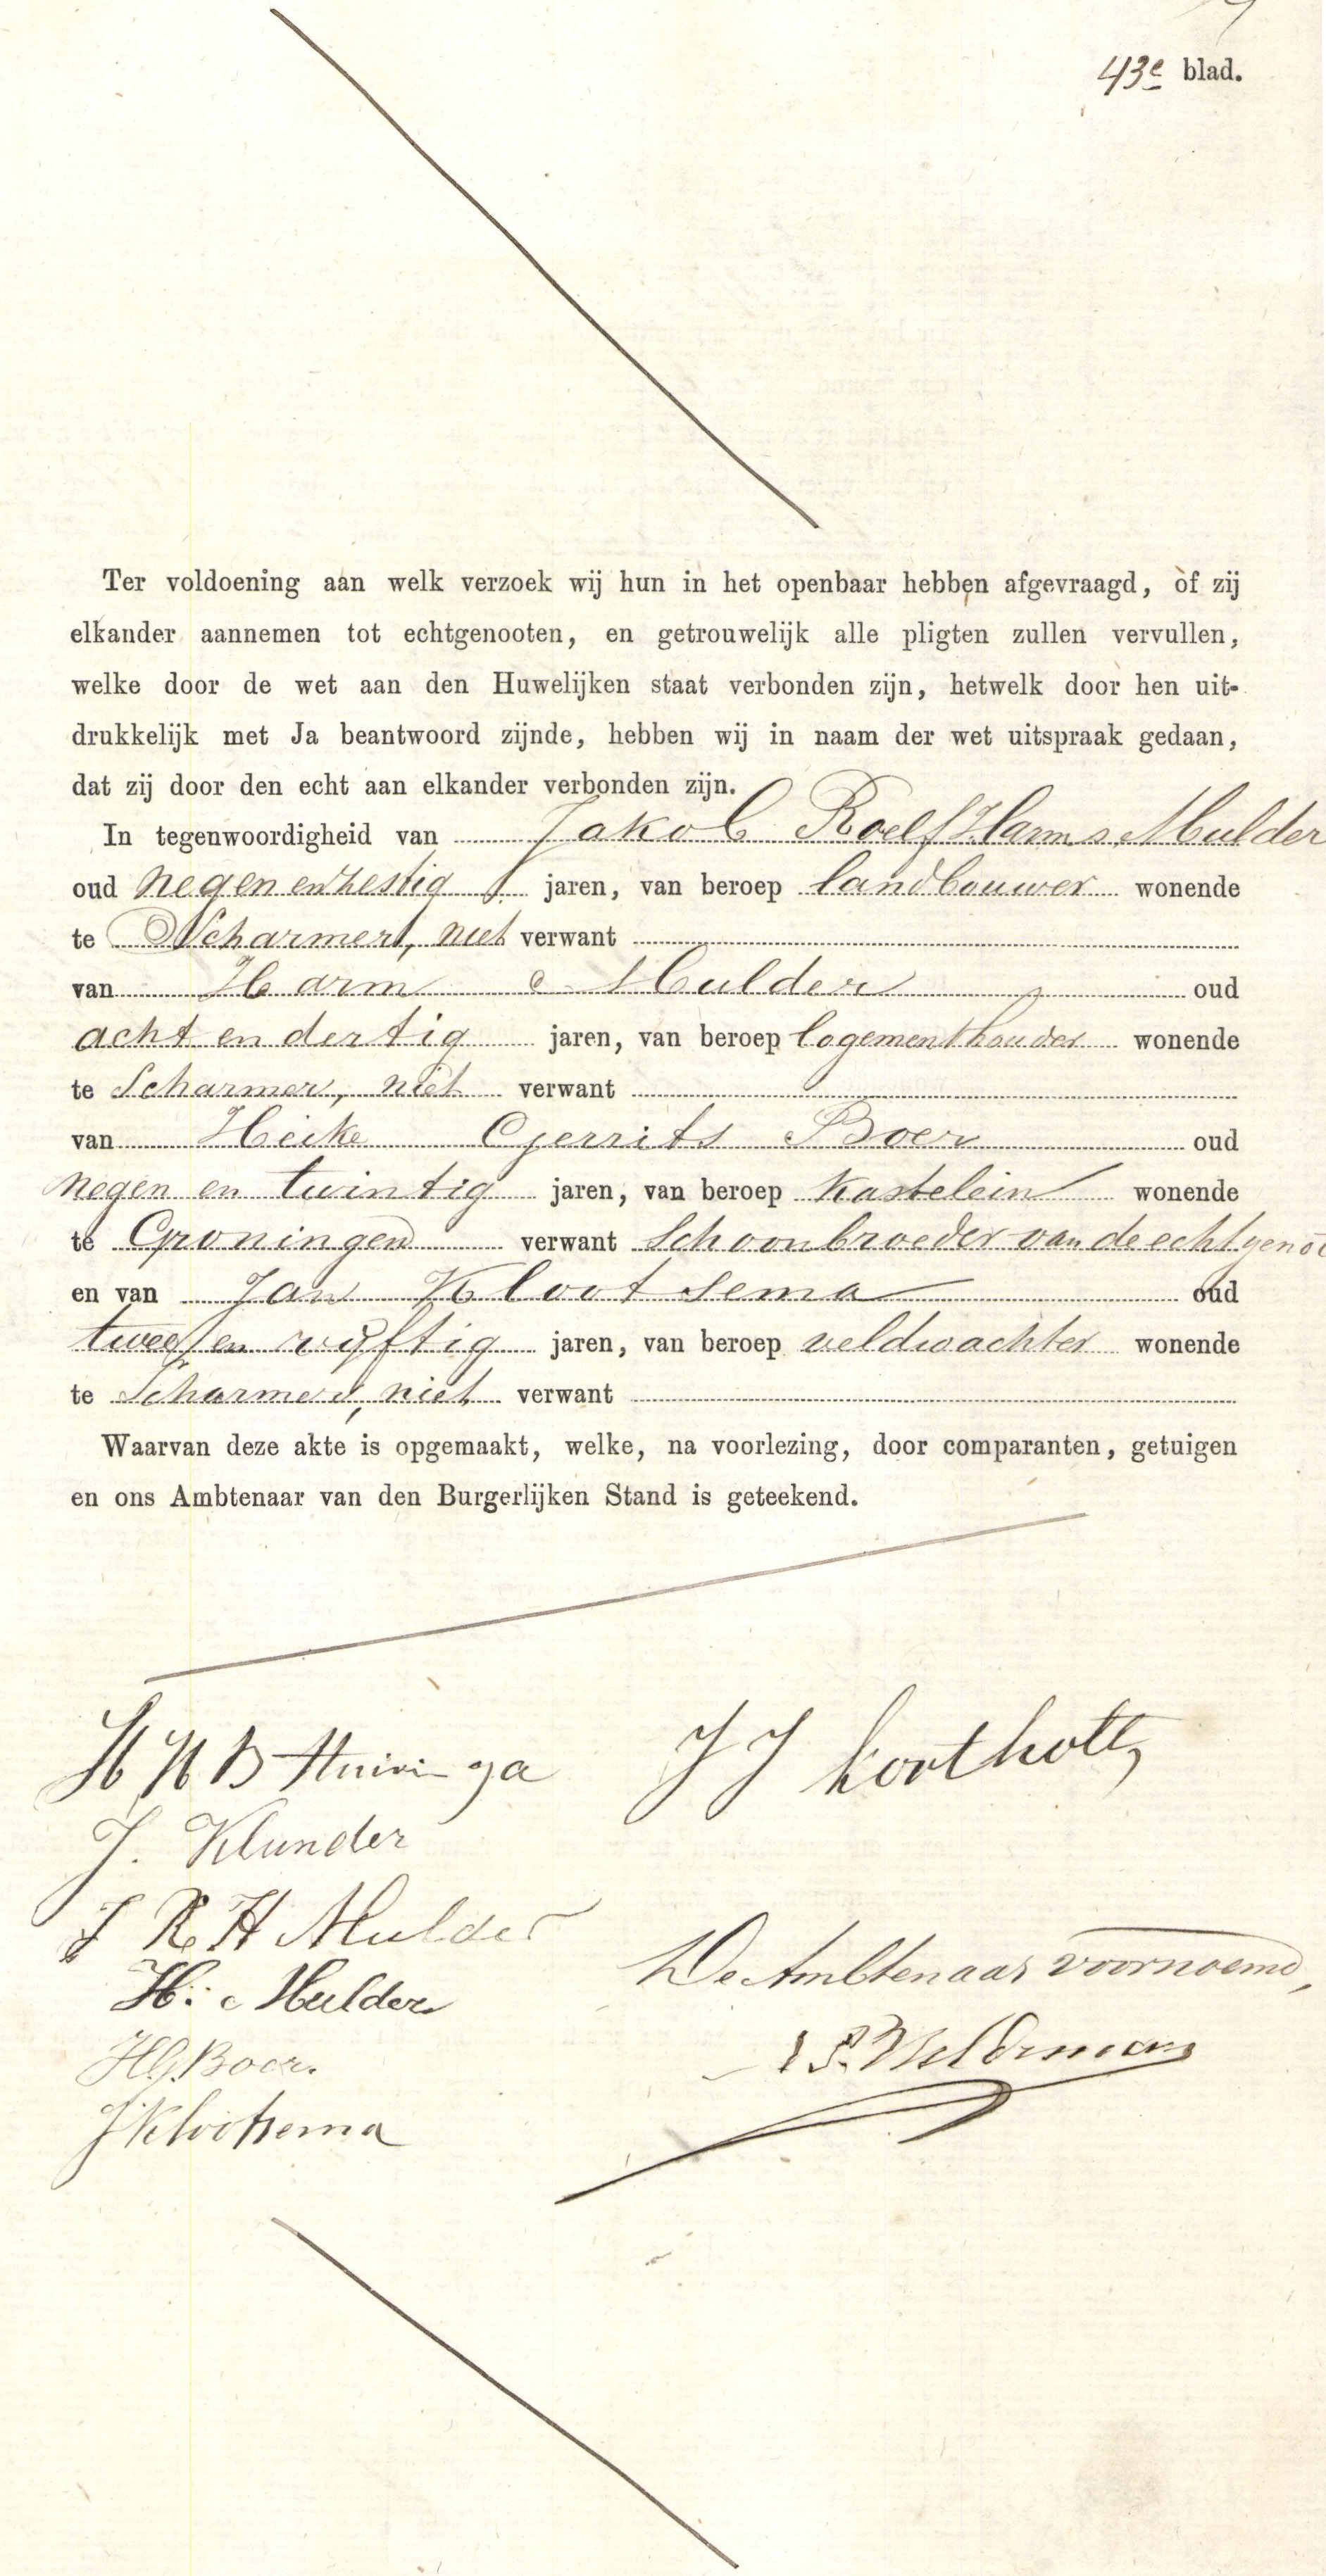 43e blad.
Ter voldoening aan welk verzoek wij hun in het openbaar hebben afgevraagd, óf zij
elkander aannemen tot echtgenooten, en getrouwelijk alle pligten zullen vervullen,
welke door de wet aan den Huwelijken staat verbonden zijn, hetwelk door hen uit-
drukkelijk met Ja beantwoord zijnde, hebben wij in naam der wet uitspraak gedaan,
dat zij door den echt aan elkander verbonden zijn.
In tegenwoordigheid van Jakob Roelf Harms Mulder
oud negen en zestig jaren, van beroep landbouwer wonende
te Scharmer, niet verwant
van Harm Mulder oud
acht en dertig jaren, van beroep logementhouder wonende
te Scharmer, niet verwant
van Heike Gerrits Boer oud
negen en twintig jaren, van beroep kastelein wonende
te Groningen verwant schoonbroeder van de echtgenoot
en van Jan Klootsema oud
twee en vijftig jaren, van beroep veldwachter wonende
te Scharmer, niet verwant
Waarvan deze akte is opgemaakt, welke, na voorlezing, door comparanten, getuigen
en ons Ambtenaar van den Burgerlijken Stand is geteekend.
H H B Huivinga J J Koortholt
J. Klunder
J R H Mulder
De Ambtenaar voornoemd,
H. Mulder
H G. Boer.
J Klootsema